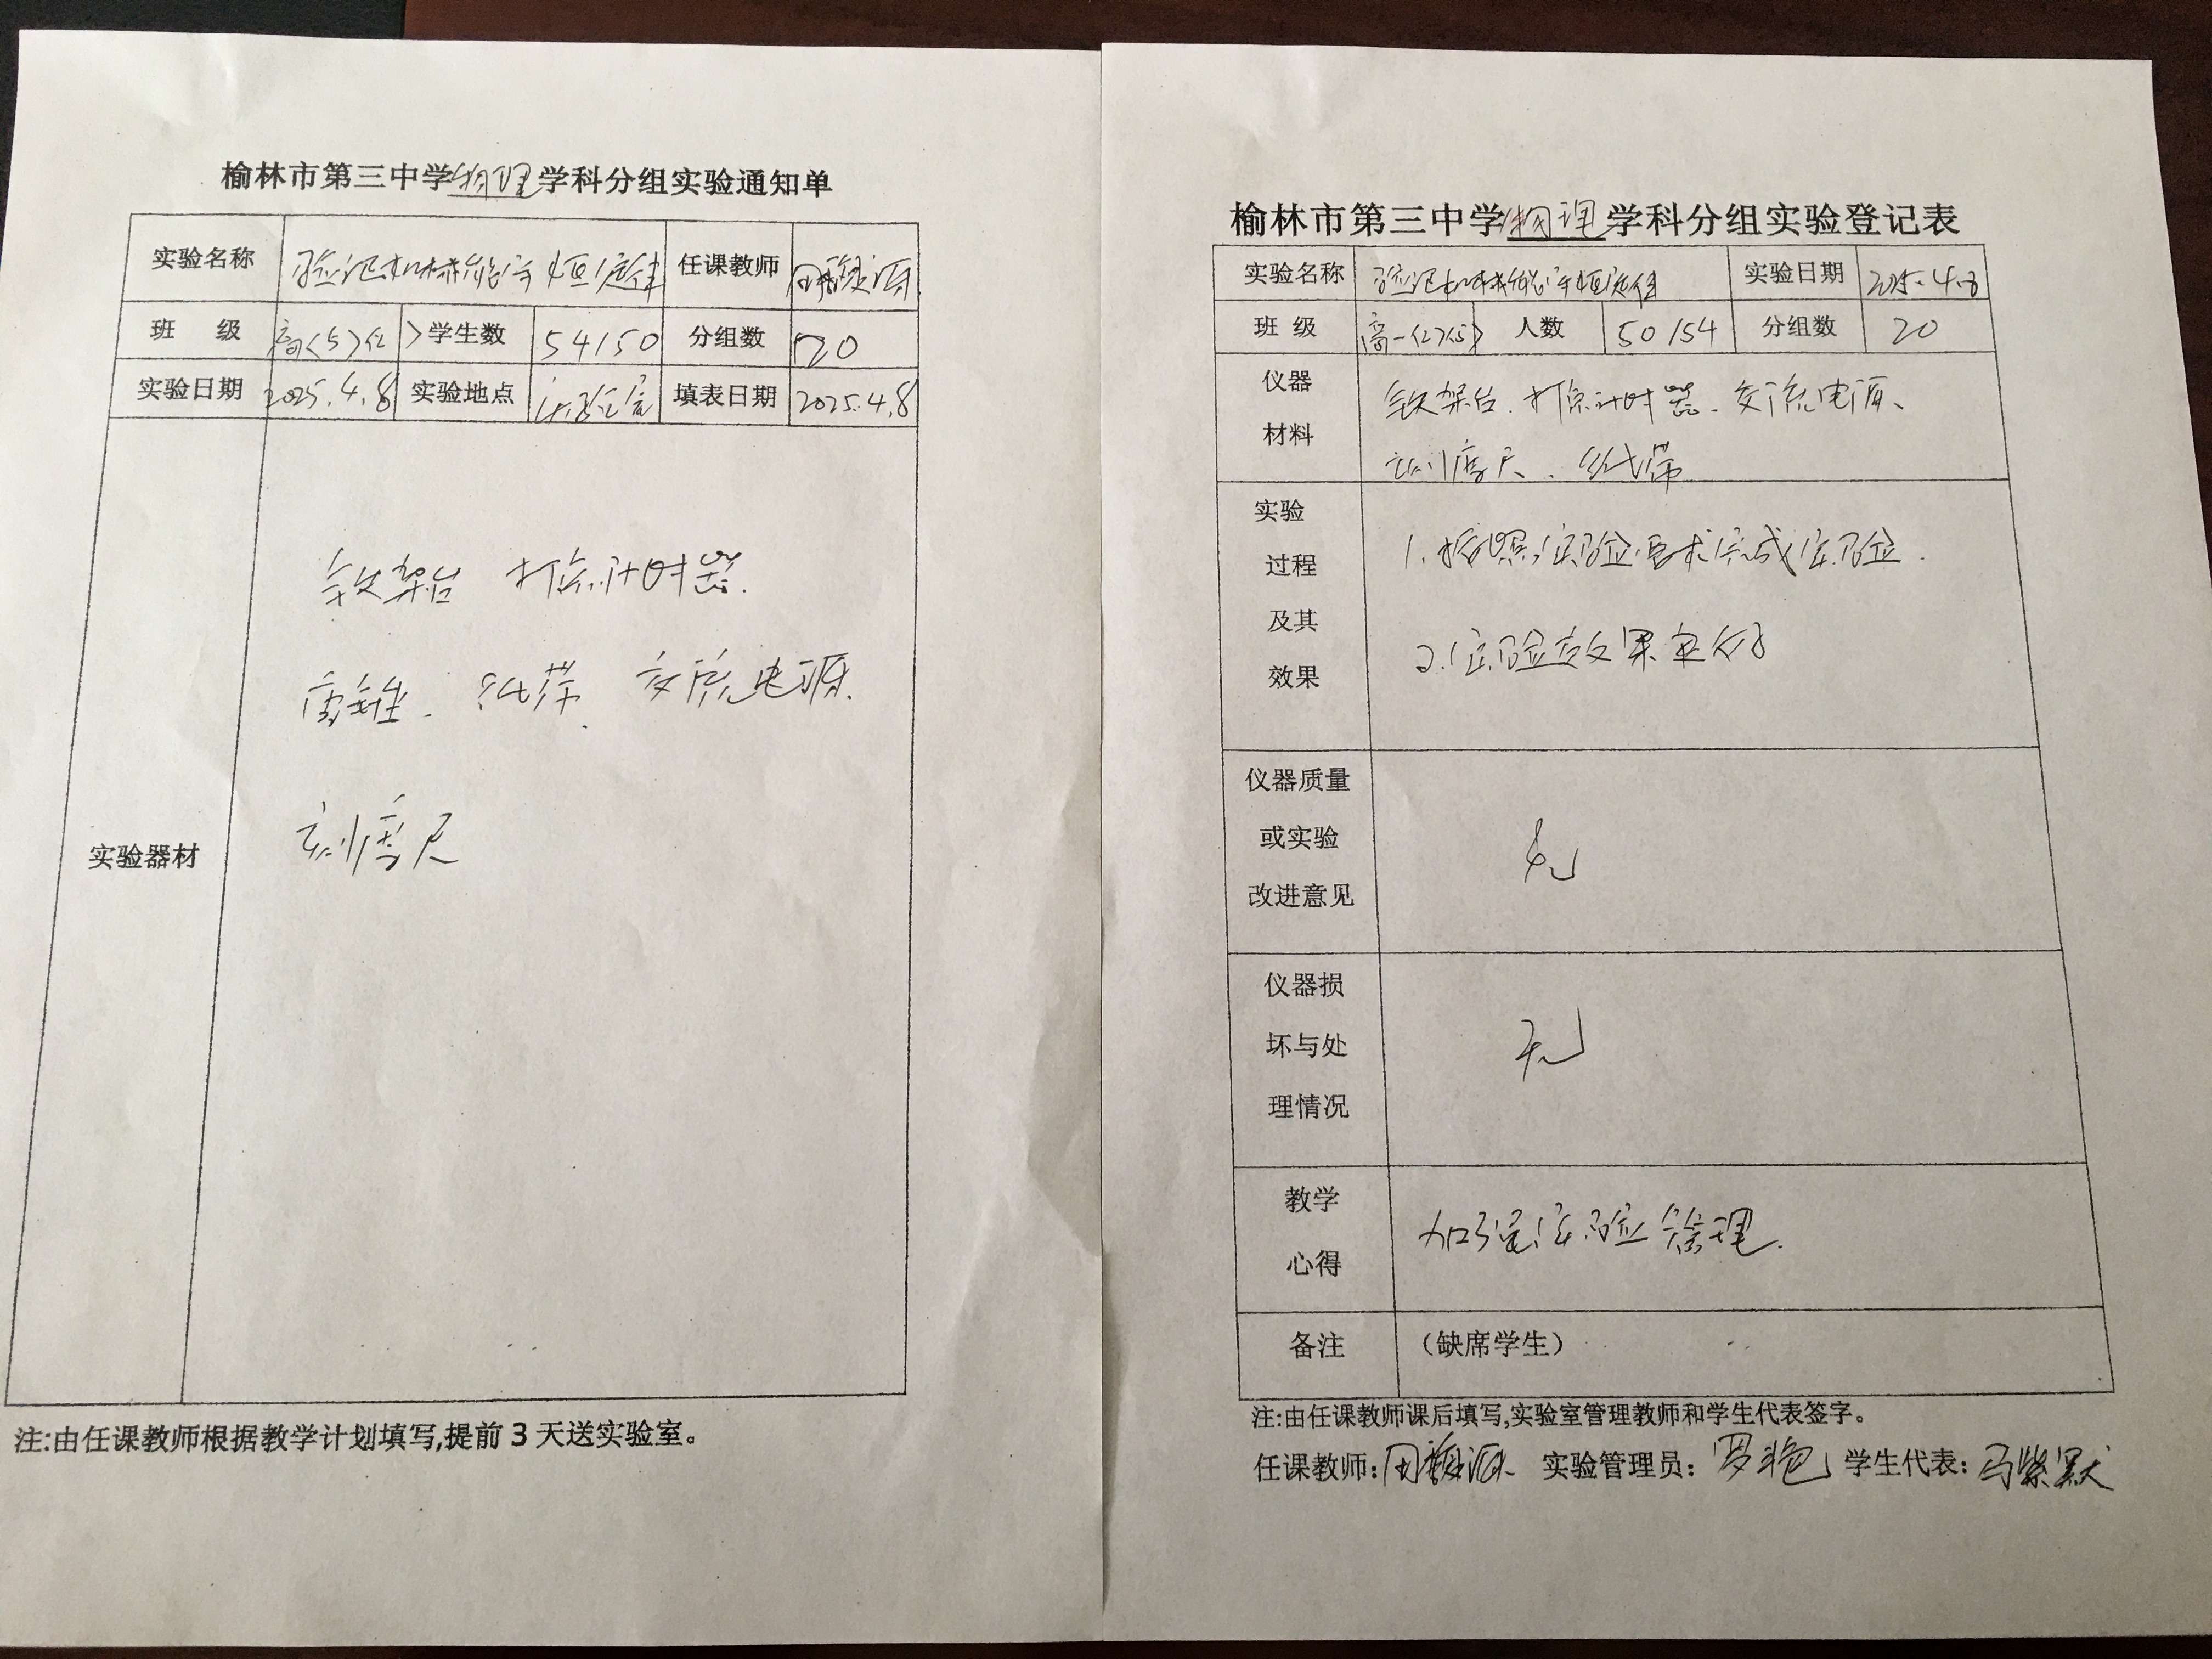 榆林市第三中学物理学科分组实验通知单
实验名称 验证机械能守恒定律 任课教师
班 级 高一〈5〉〈2〉 学生数 54/50 分组数 20
实验日期 2025.4.8 实验地点 实验室 填表日期 2025.4.8
实验器材
铁架台 打点计时器.
重锤. 纸带. 交流电源.
刻度尺
注:由任课教师根据教学计划填写,提前3天送实验室。
榆林市第三中学物理学科分组实验登记表
实验名称 验证机械能守恒定律 实验日期 2025.4.8
班 级 高一〈2〉〈5〉 人数 50/54 分组数 20
仪器
材料
铁架台、打点计时器、交流电源、
刻度尺、纸带
实验
过程
及其
效果
1.按照实验要求完成实验.
2.实验效果良好
仪器质量
或实验
改进意见
无
仪器损
坏与处
理情况
无
教学
心得
加强实验管理.
备注 (缺席学生)
注:由任课教师课后填写,实验室管理教师和学生代表签字。
任课教师: 实验管理员:罗艳 学生代表:马紫默